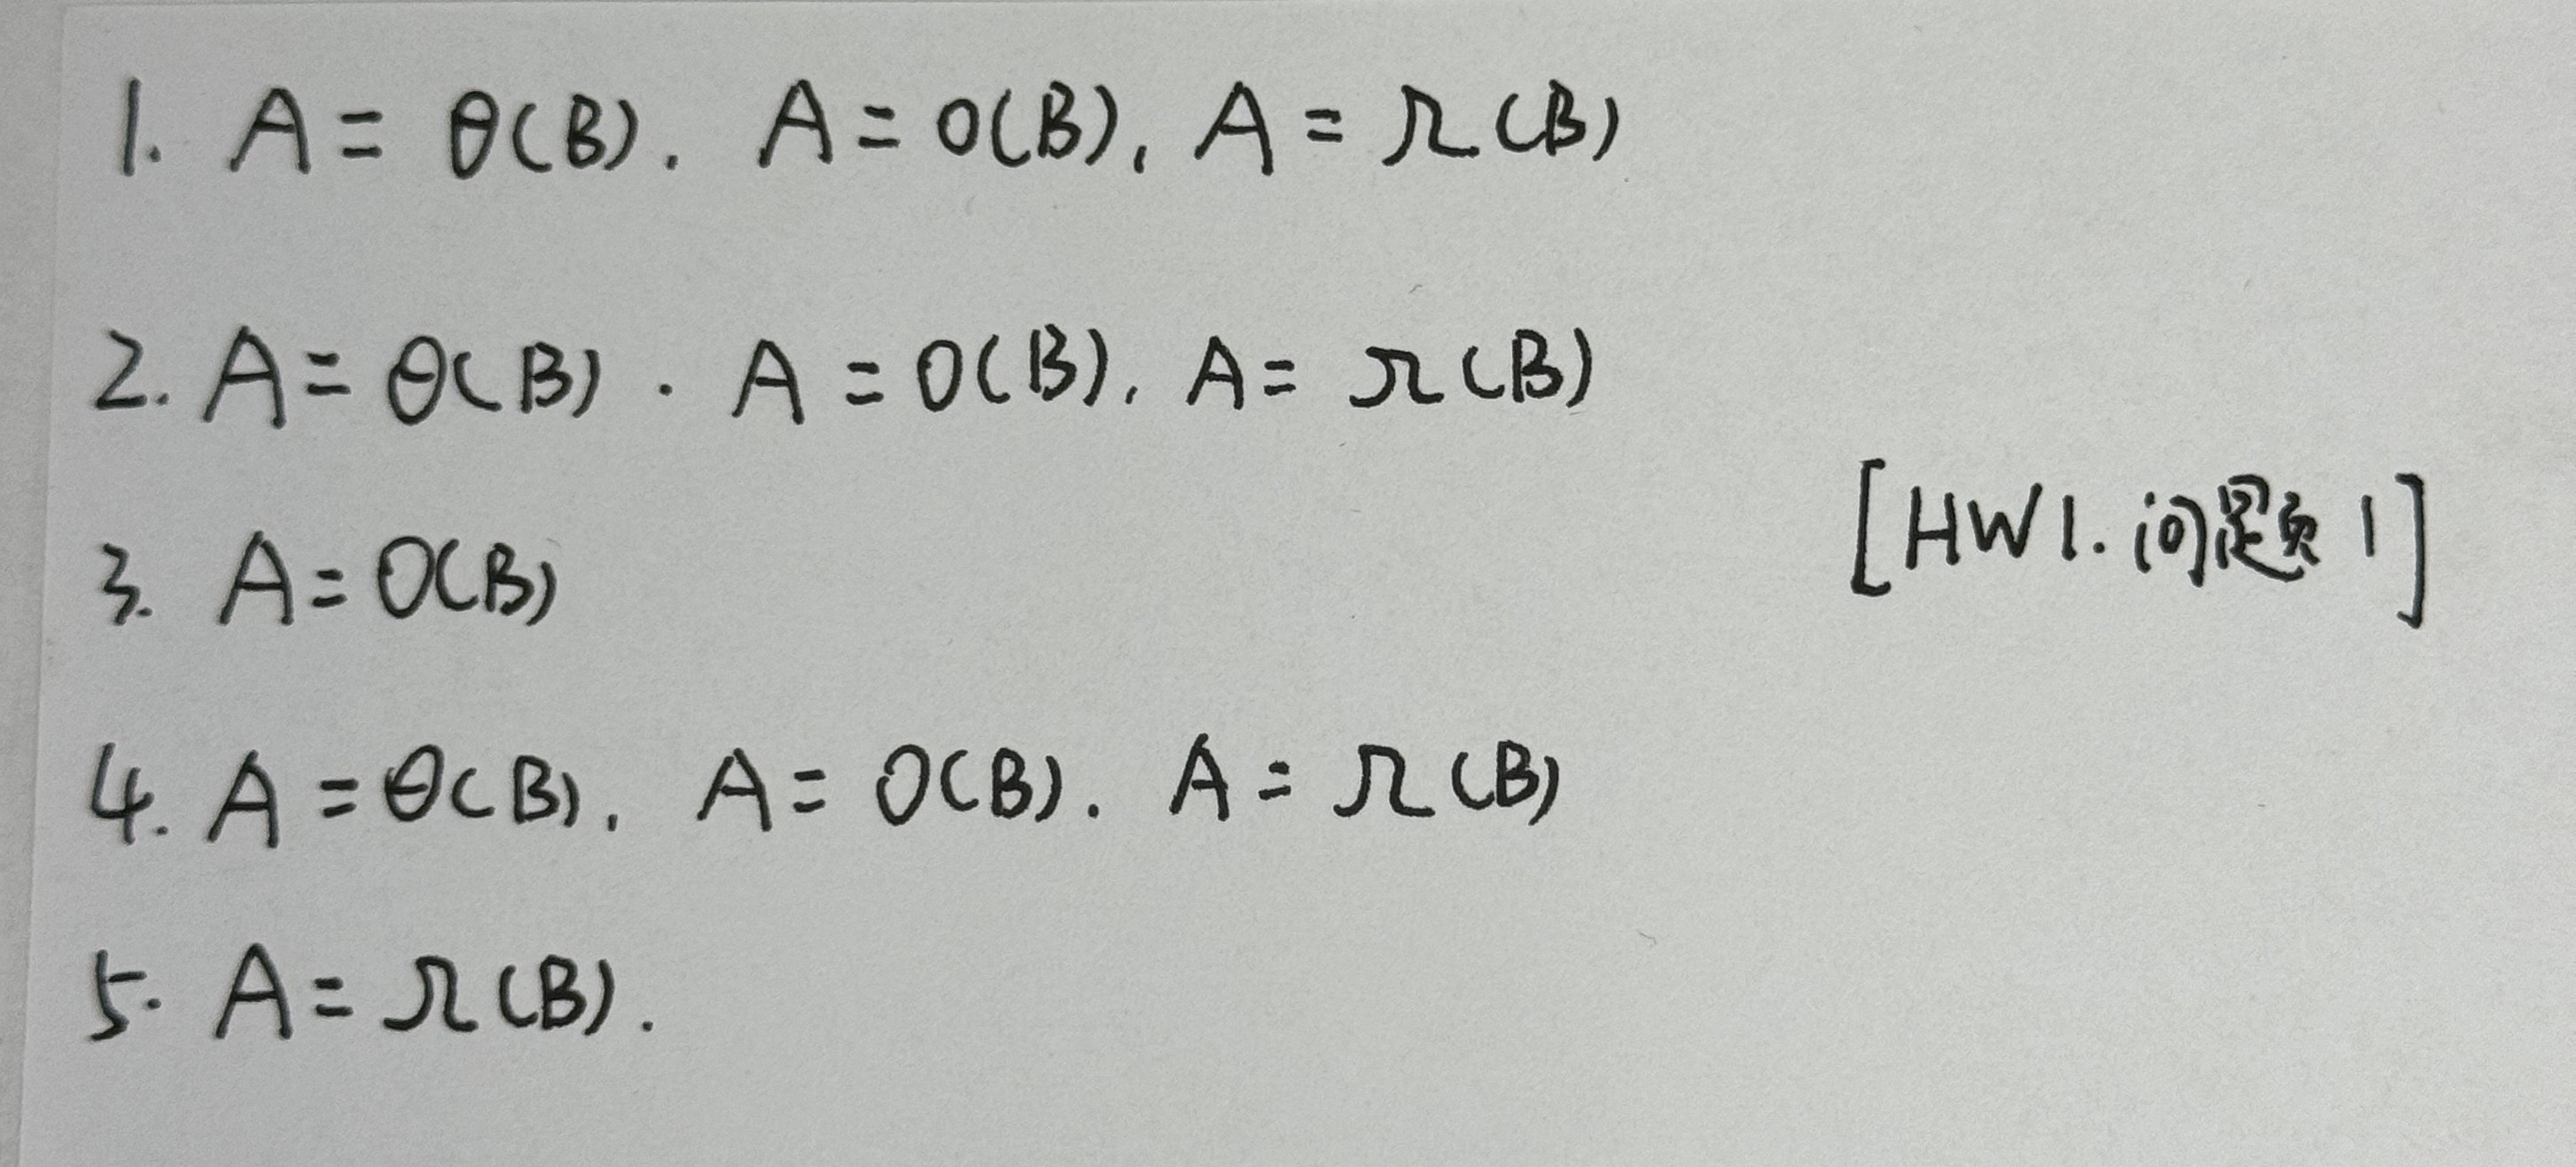 1. A = θ(B). A = O(B), A = Ω(B)
2. A = θ(B). A = O(B), A = Ω(B)
[HW1. 问题1]
3. A = O(B)
4. A = θ(B), A = O(B). A = Ω(B)
5. A = Ω(B).